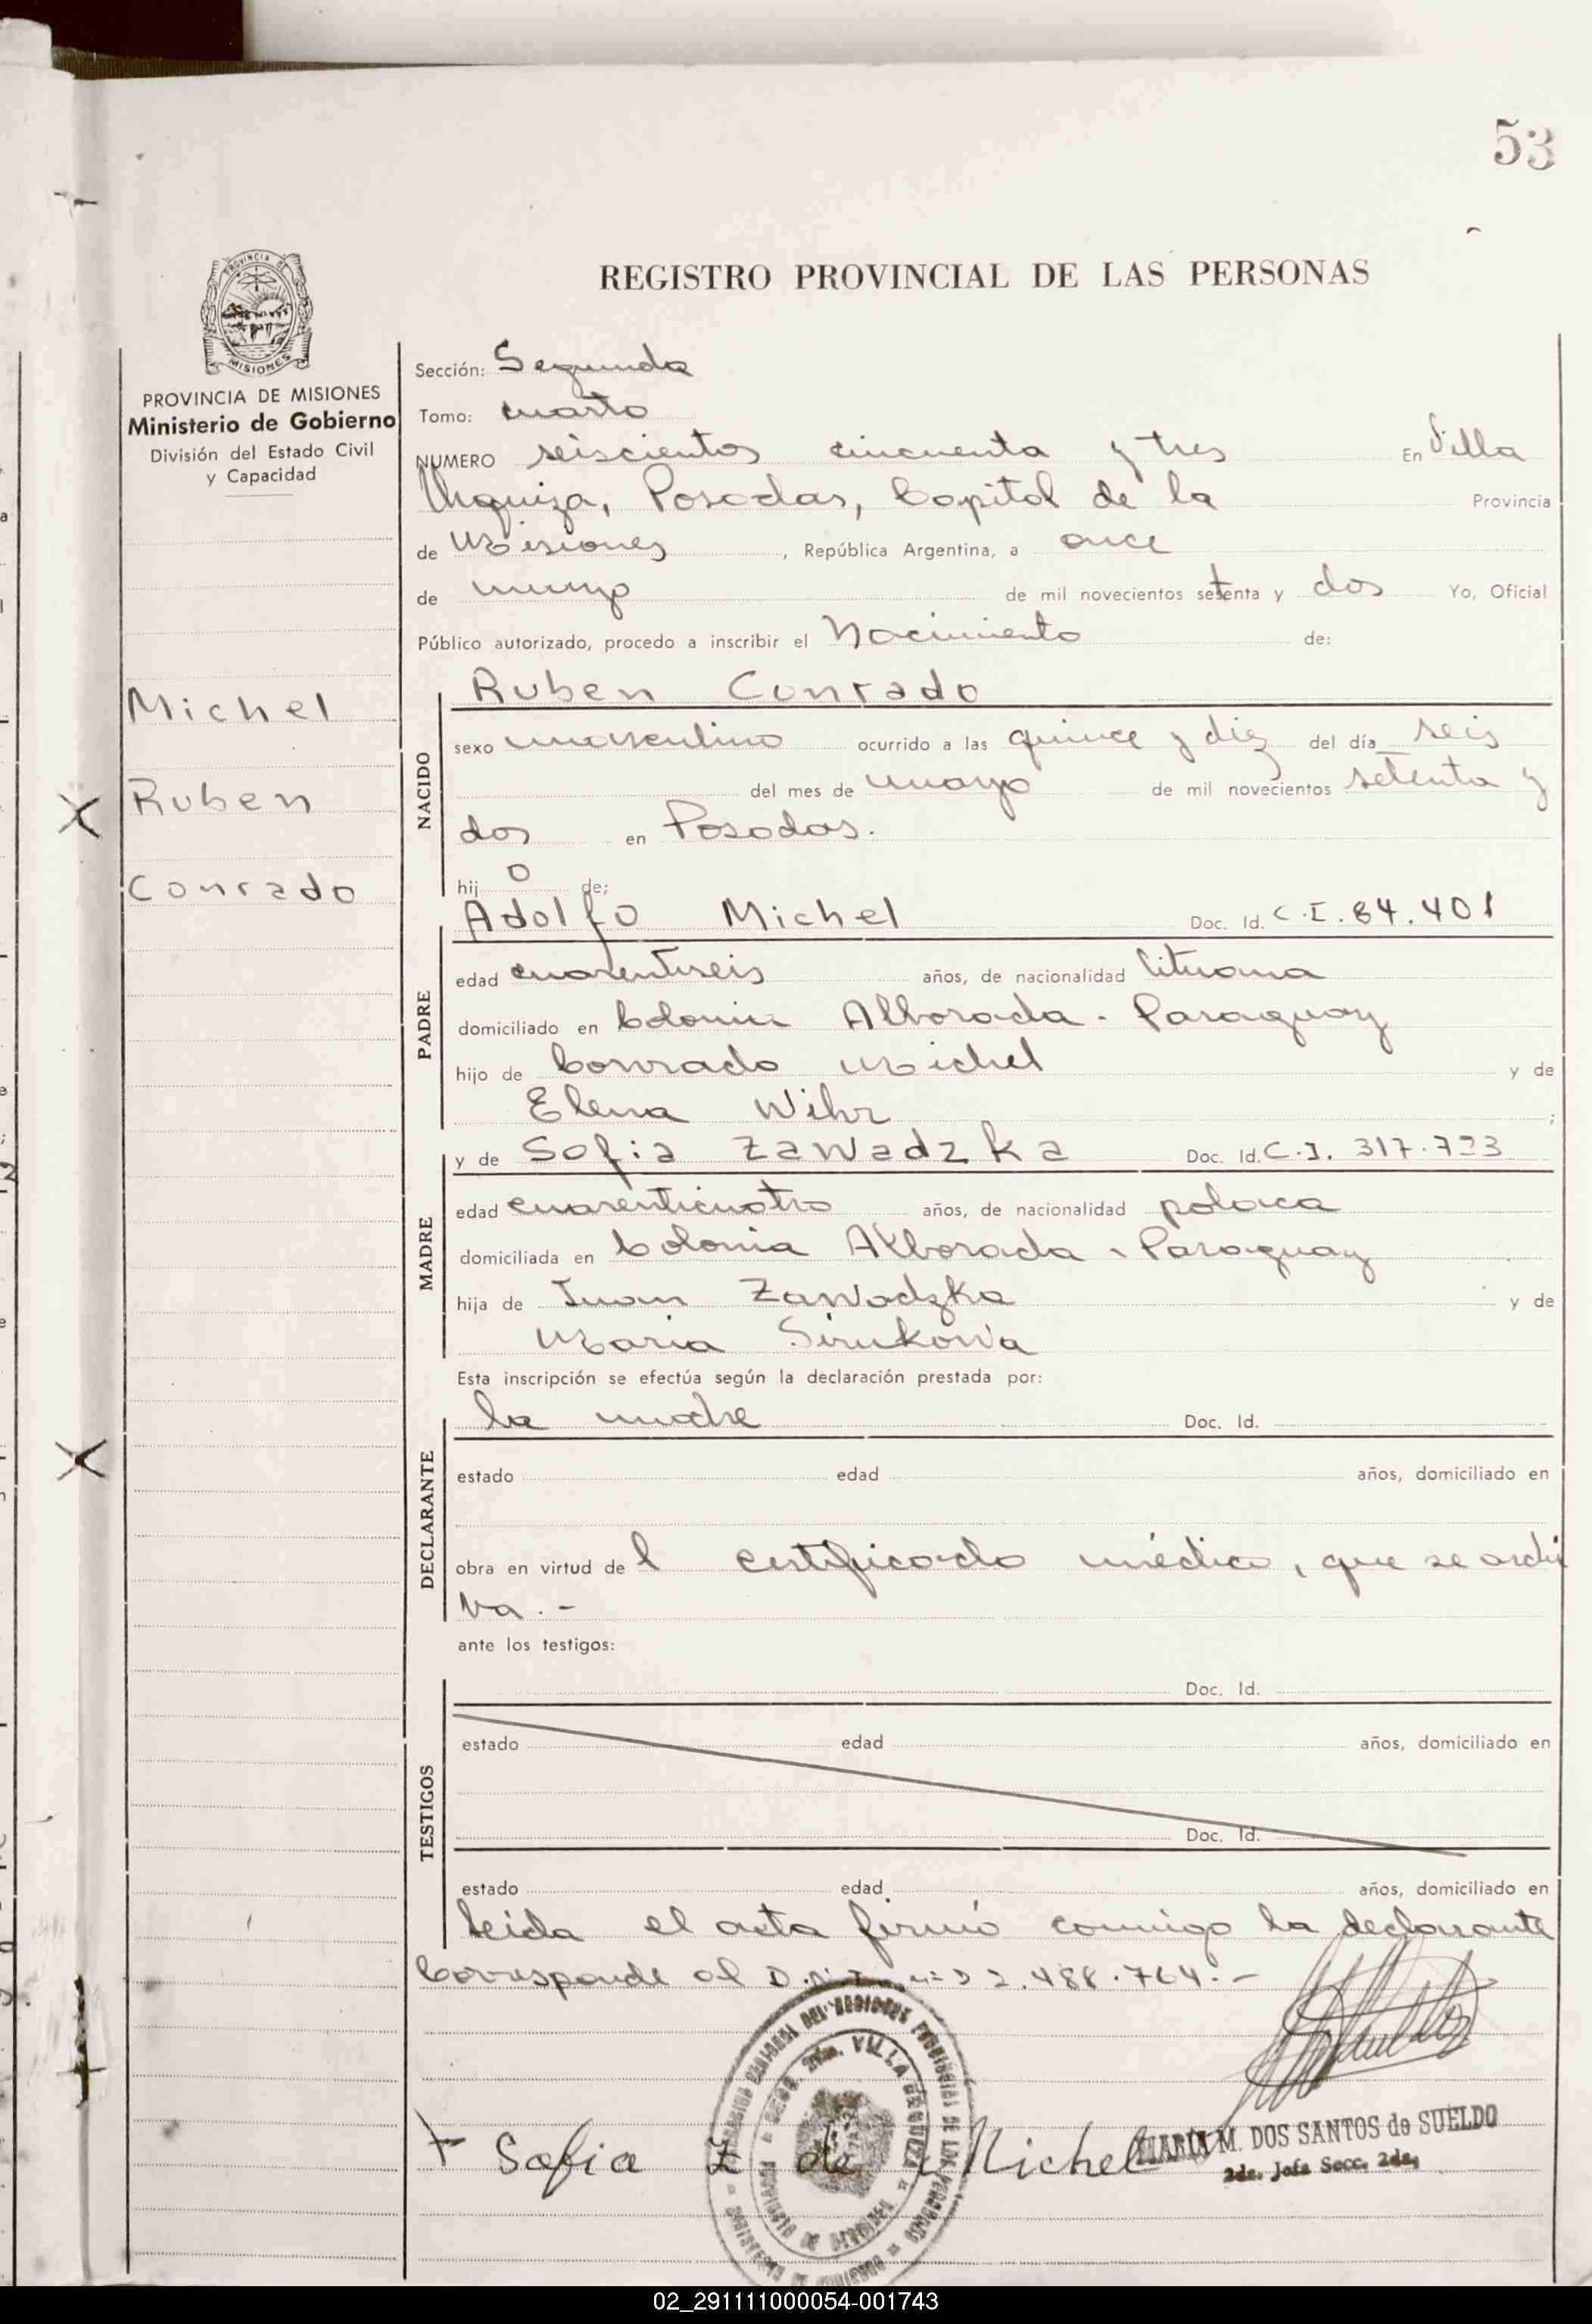 53
REGISTRO PROVINCIAL DE LAS PERSONAS
PROVINCIA DE
MISIONES
PROVINCIA DE MISIONES
Ministerio de Gobierno
División del Estado Civil
y Capacidad
Michel
Ruben
Conrado
Sección: Segunda
Tomo: cuarto
NUMERO seiscientos cincuenta y tres En Villa
Urquiza, Posadas, Capital de la Provincia
de Misiones, República Argentina, a once
de mayo de mil novecientos setenta y dos Yo, Oficial
Público autorizado, procedo a inscribir el Nacimiento de:
NACIDO
Ruben Conrado
sexo masculino ocurrido a las quince y diez del día seis
del mes de mayo de mil novecientos setenta y
dos en Posadas.
hijo de;
PADRE
Adolfo Michel Doc. Id. C.I. 84.401
edad cuarentiseis años, de nacionalidad lituana
domiciliado en Colonia Alborada - Paraguay
hijo de Conrado Michel y de
Elena Wihr ;
MADRE
y de Sofia Zawadzka Doc. Id. C.I. 317.723
edad cuarenticuatro años, de nacionalidad polaca
domiciliada en Colonia Alborada - Paraguay
hija de Juan Zawadzka y de
Maria Sirukowa
Esta inscripción se efectúa según la declaración prestada por:
DECLARANTE
la madre Doc. Id.
estado edad años, domiciliado en
obra en virtud del certificado médico, que se archi
va.-
ante los testigos:
TESTIGOS
Doc. Id.
estado edad años, domiciliado en
Doc. Id.
estado edad años, domiciliado en
Leida el acta firmó conmigo la declarante
Corresponde al D.N.I. nº 22.488.764.-
Sofia Z de Michel
MARIA M. DOS SANTOS de SUELDO
2da. Jefa Secc. 2da.
02_291111000054-001743